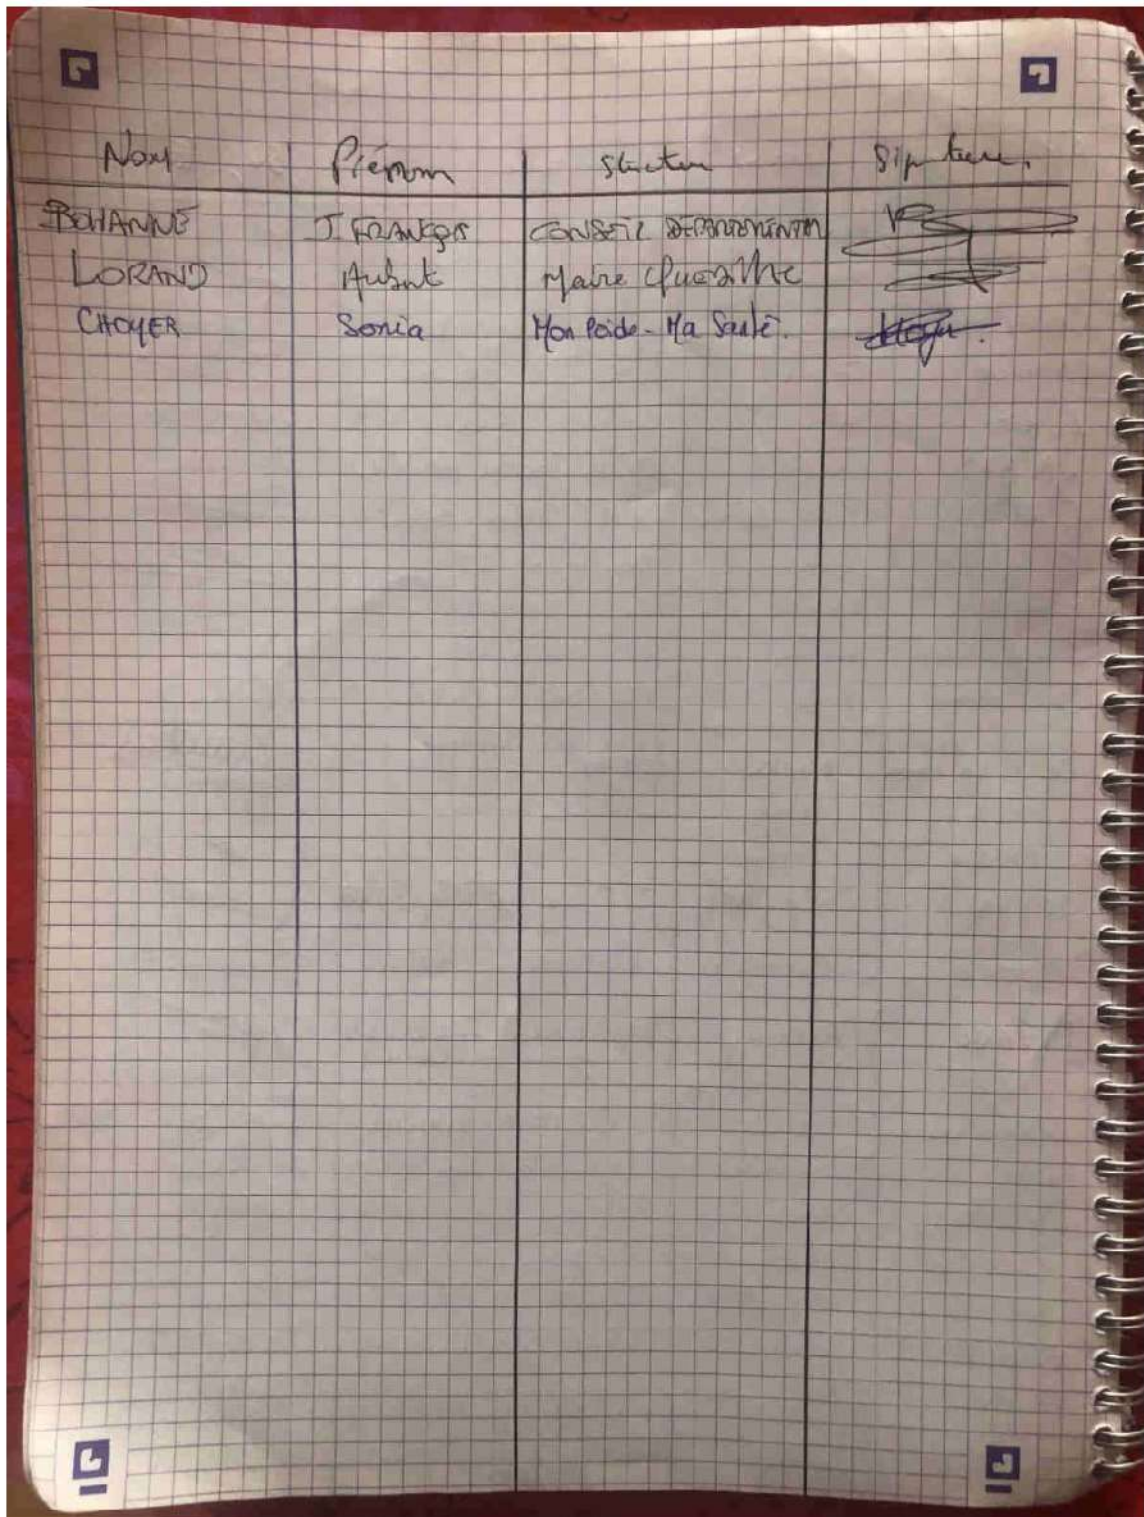 Nom Prénom Structure Signature.
BOHANNE J. FRANÇOIS CONSEIL DÉPARTEMENTAL
LORAND Maire
CHOYER Sonia Mon Poids - Ma Santé.